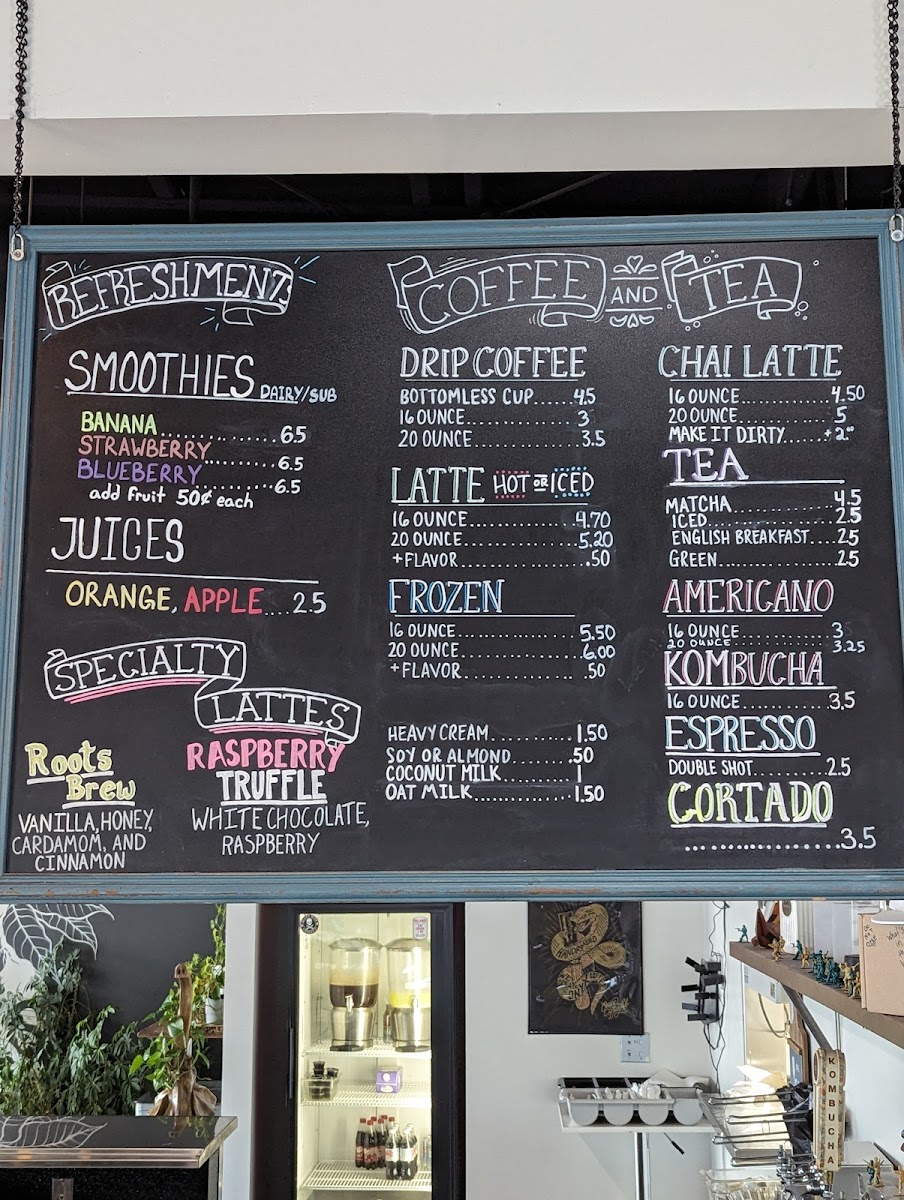 REFRESHMENTS
SMOOTHIES DAIRY/SUB
BANANA..............6.5
STRAWBERRY..........6.5
BLUEBERRY..........6.5
add fruit 50¢ each
JUICES
ORANGE, APPLE...2.5
SPECIALTY
LATTES
Roots
Brew
VANILLA, HONEY,
CARDAMOM, AND
CINNAMON
RASPBERRY
TRUFFLE
WHITE CHOCOLATE,
RASPBERRY
COFFEE AND TEA
DRIP COFFEE
BOTTOMLESS CUP.....4.5
16 OUNCE...............3
20 OUNCE..............3.5
LATTE HOT OR ICED
16 OUNCE..............4.70
20 OUNCE..............5.20
+FLAVOR................50
FROZEN
16 OUNCE...............5.50
20 OUNCE...............6.00
+FLAVOR................50
HEAVY CREAM...........1.50
SOY OR ALMOND........50
COCONUT MILK..........1
OAT MILK..............1.50
CHAI LATTE
16 OUNCE.............4.50
20 OUNCE..............5
MAKE IT DIRTY.....+2.00
TEA
MATCHA.............4.5
ICED................2.5
ENGLISH BREAKFAST...2.5
GREEN...............2.5
AMERICANO
16 OUNCE.............3
20 OUNCE.............3.25
KOMBUCHA
16 OUNCE.............3.5
ESPRESSO
DOUBLE SHOT..........2.5
CORTADO
..................3.5
KOMBUCHA